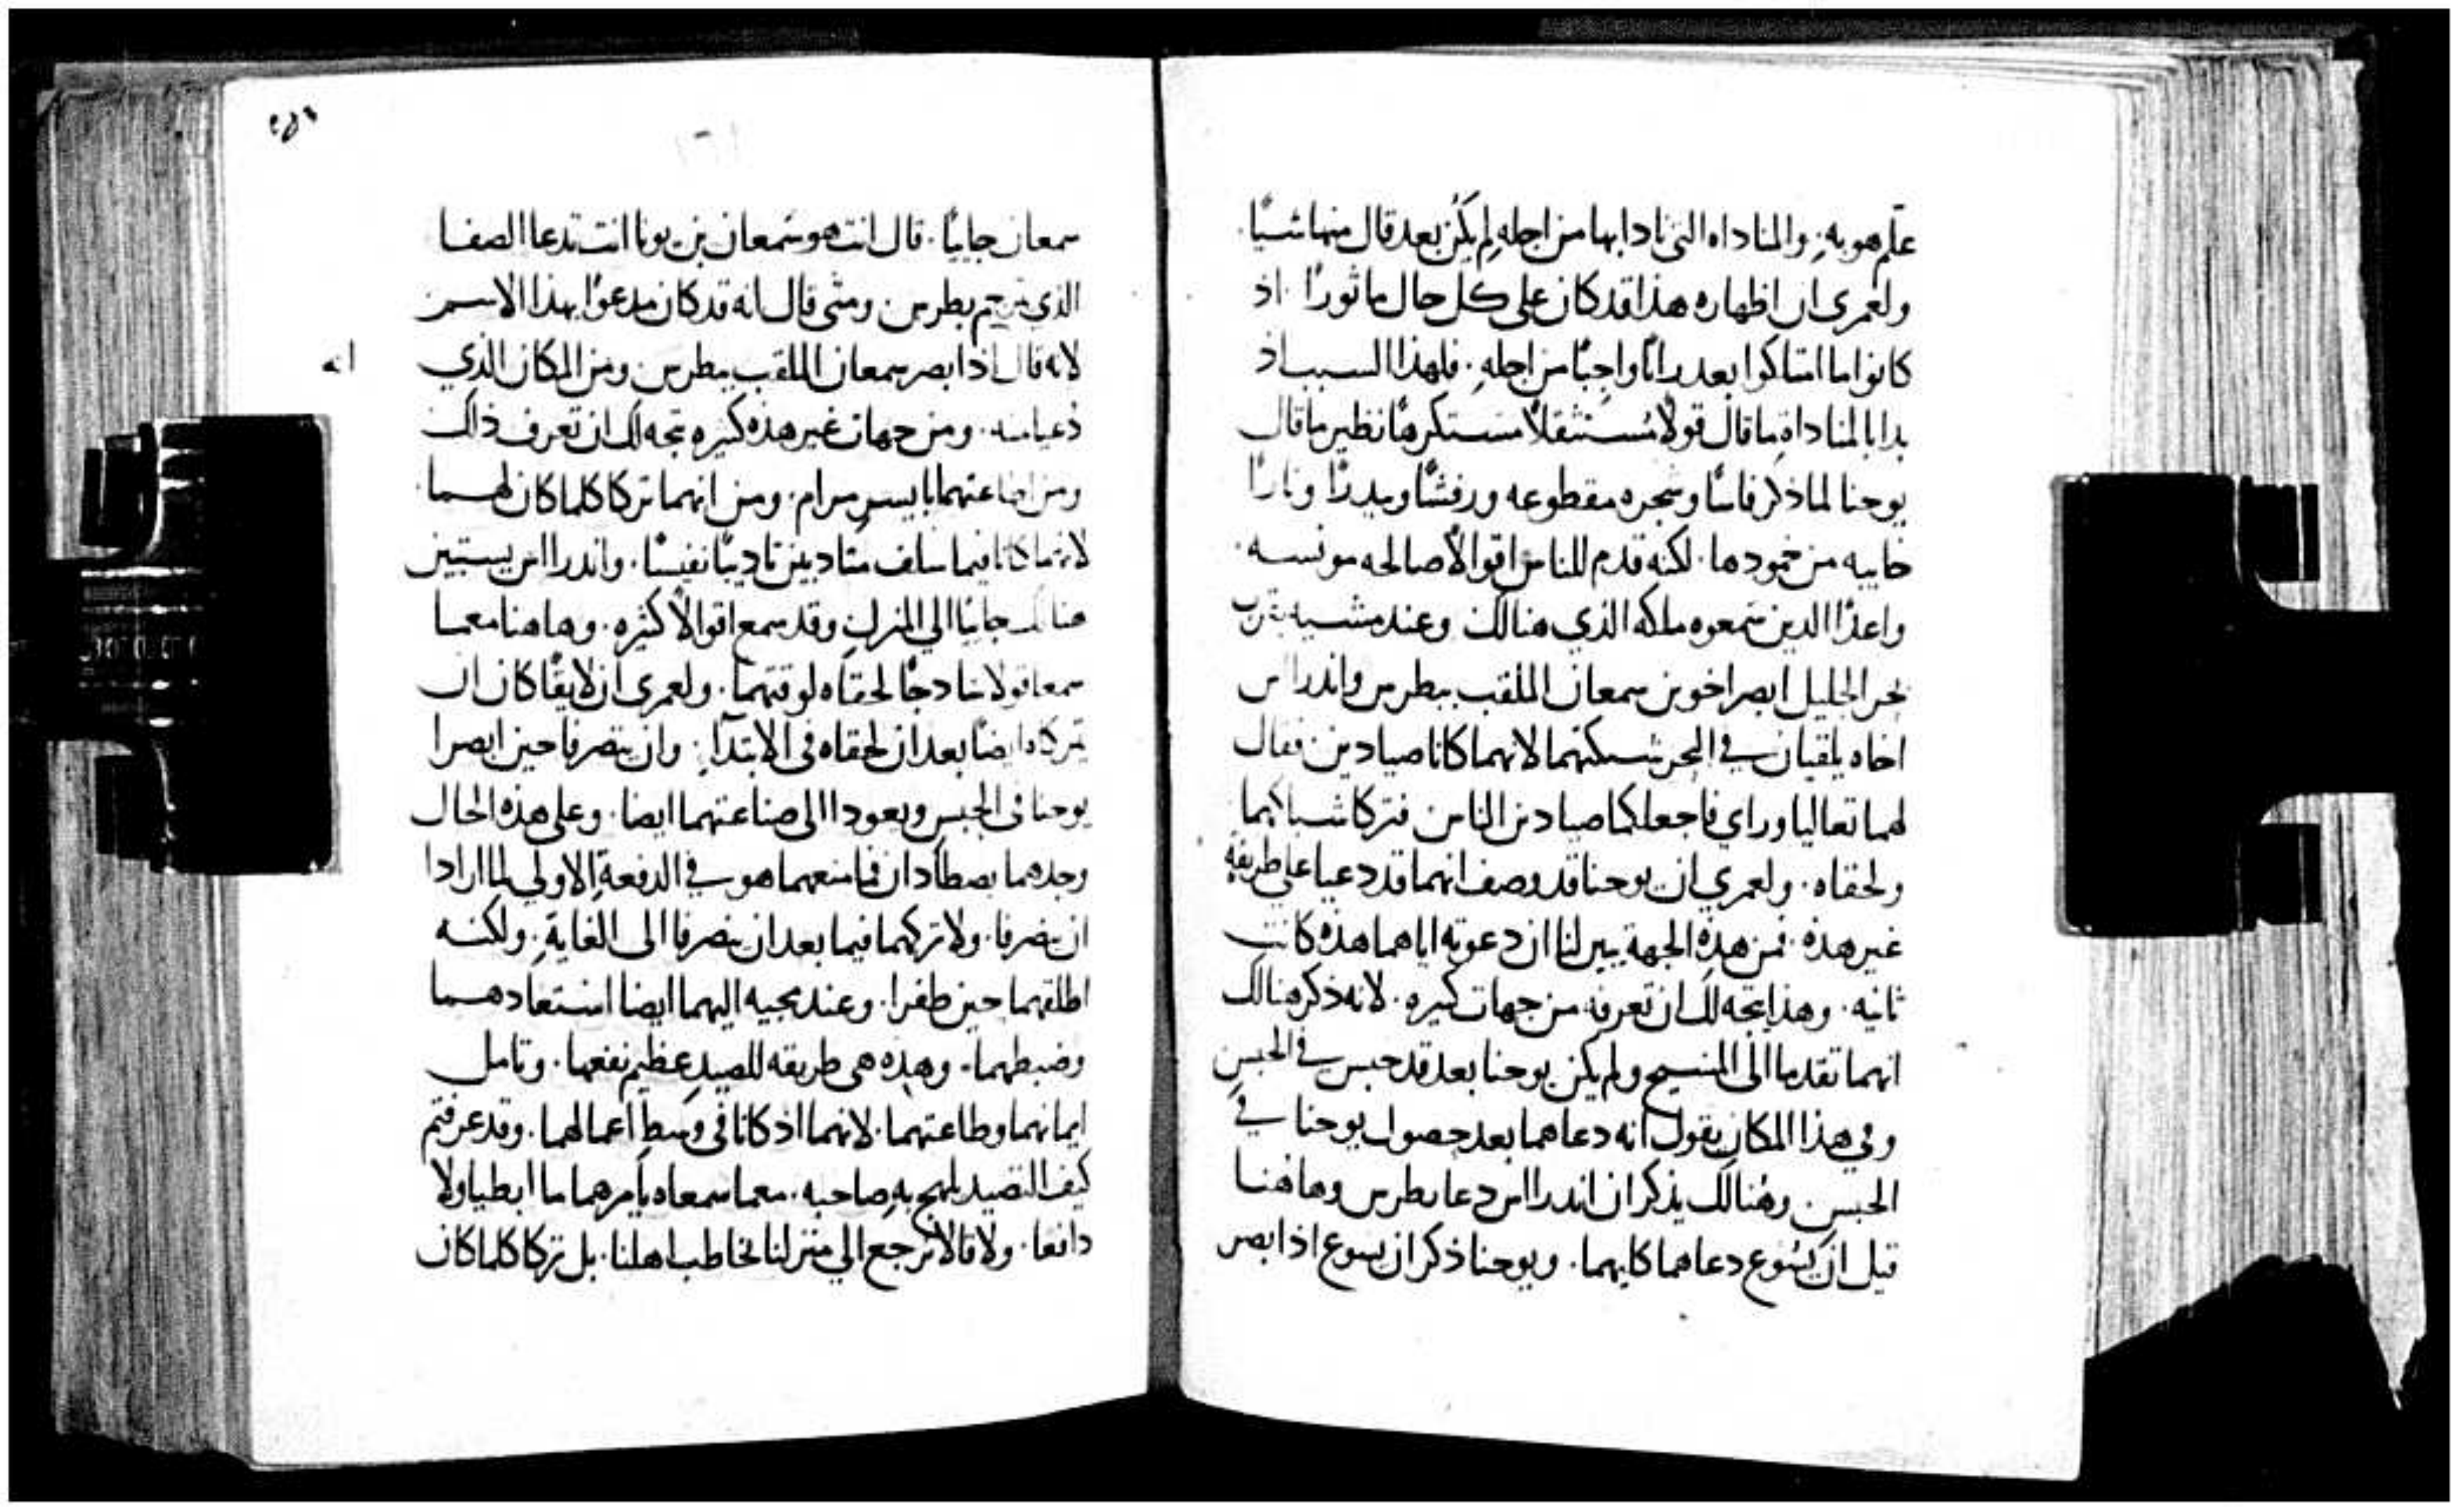 علم هو به. والمناداه التي نادا بها من اجله لم يكن بعد قال منها شيًا.
ولعمري ان اظهاره هذا قد كان على كل حال ماثورًا. اذ
كانوا ما امتلكوا بعد رايًا واجبًا من اجله. فلهذا السبب اذ
بدا بالمناداة ما قال قولًا مُستثقلًا مستكرهًا نظير ما قال
يوحنا لما ذكر فاسًا وشجره مقطوعه ورفشًا وبيدرًا ونارًا
خاييه من خمودها. لكنه قدم للناس اقوالًا صالحه مونسه.
واعدًا الدين سمعوه ملكه الذي هنالك وعند مشيه بقرب
بحر الجليل ابصر اخوين سمعان الملقب ببطرس واندراس
اخاه يلقيان في البحر شبكتهما لانهما كانا صيادين فقال
لهما تعاليا وراي فاجعلكما صيادين الناس فتركا شباكهما
ولحقاه. ولعمري ان يوحنا قد وصف انهما قد دعيا على طريقةٍ
غير هذه. فمن هذه الجهة يبين لنا ان دعوته اياهما هذه كانت
ثانيه. وهذا يتجه لك ان تعرفه من جهات كثيره. لانه ذكر هنالك
انهما تقدما الى المسيح ولم يكن يوحنا بعد قد حبس في الحبس
وفي هذا المكان يقول انه دعاهما بعد حصول يوحنا في
الحبس. وهُنالك يذكر ان اندراس دعا بطرس وهاهنا
قبل ان يسُوع دعاهما كليهما. ويوحنا ذكر ان يسوع اذ ابصر
سمعان جاييًا. قال انت هو سَمعان بن يونا انت تدعا الصفا
الذي يترجم بطرس ومتى قال انه قد كان مدعوًا بهذا الاسم
لانه قال اذ ابصر سمعان الملقب ببطرس ومن المكان الذي
دُعيا منه. ومن جهات غير هذه كثيره يتجه لك ان تعرف ذلك
ومن اطاعتهما بايسر مرام. ومن انهما تركا كلما كان لهما.
لانهما كانا فيما سلف متادبين تاديبًا نفيسًا. واندراس يستبين
هنالك جاييًا الي المنزل وقد سمع اقوالًا كثيره. وهاهنا معما
سمعا قولًا سادجًا لحقاه لوقتهما. ولعمري ان لايقًا كان ان
يتركاه ايضًا بعد ان لحقاه في الابتدآ. وان ينصرفا حين ابصرا
يوحنا في الحبس ويعودا الى صناعتهما ايضا. وعلى هذه الحال
وجدهما يصطادان فما منعهما هو في الدفعةِ الاولي لما ارادا
ان ينصرفا. ولا تركهما فيما بعد ان ينصرفا الى الغايةِ. ولكنه
اطلقهما حين طفرا. وعند مجيه اليهما ايضا استعادهما
وضبطهما. وهذه هى طريقه للصيد عظيم نفعها. وتامل
ايمانهما وطاعتهما. لانهما اذ كانا في وسط اعمالهما. وقد عرفتم
كيف التصيد يلهج به صاحبه. معما سمعاه يامرهما ما ابطيا ولا
دافعا. ولا قالا نرجع الي منزلنا نخاطب اهلنا. بل تركا كلما كان